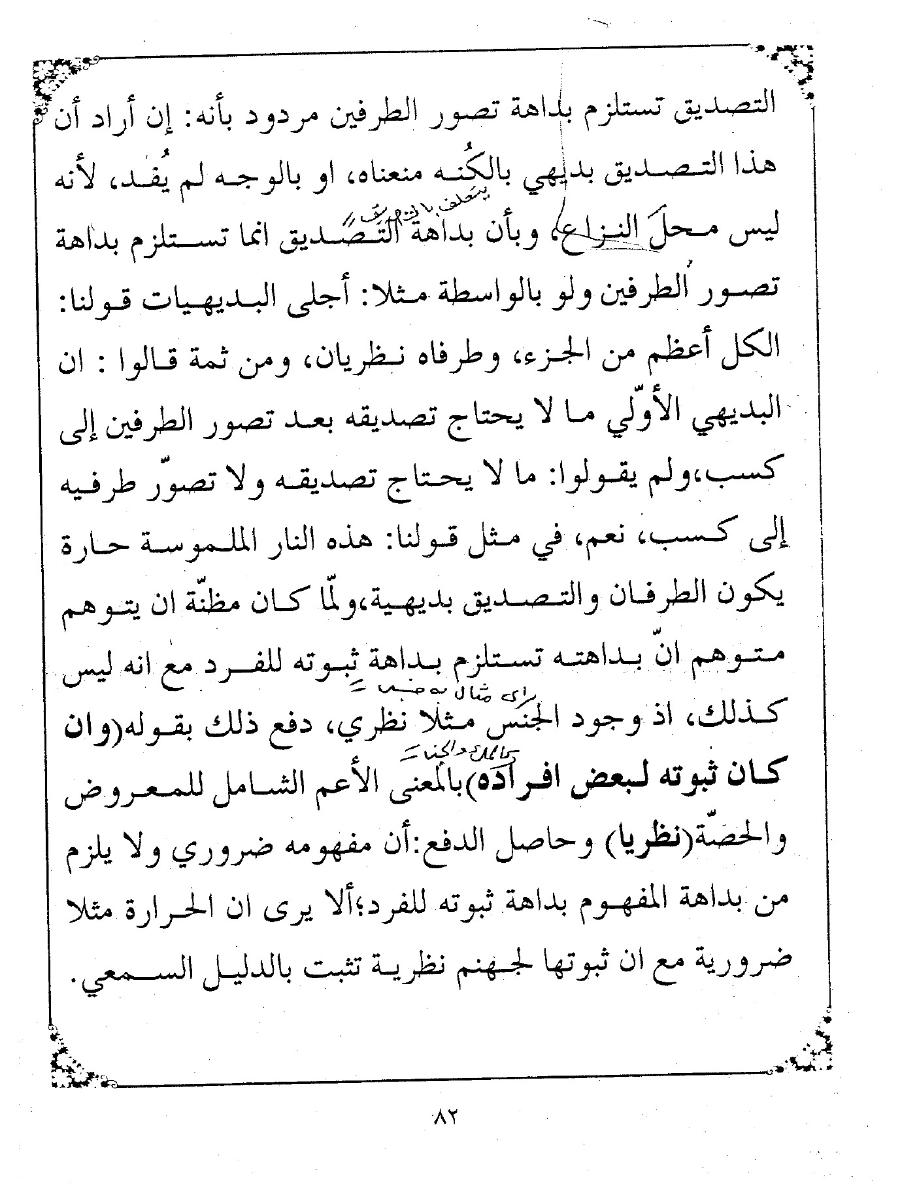 التصديق تستلزم بداهة تصور الطرفين مردود بأنه: إن أراد أن
هذا التصديق بديهي بالكُنه منعناه، او بالوجه لم يُفد، لأنه
يتعلق
ليس محلَ النزاع، وبأن بداهة التصديق انما تستلزم بداهة
تصور الطرفين ولو بالواسطة مثلا: أجلى البديهيات قولنا:
الكل أعظم من الجزء، وطرفاه نظريان، ومن ثمة قالوا : ان
البديهي الأوّلي ما لا يحتاج تصديقه بعد تصور الطرفين إلى
كسب،ولم يقولوا: ما لا يحتاج تصديقه ولا تصوّر طرفيه
إلى كسب، نعم، في مثل قولنا: هذه النار الملموسة حارة
يكون الطرفان والتصديق بديهية،ولمّا كان مظنّة ان يتوهم
متوهم انّ بداهته تستلزم بداهة ثبوته للفرد مع انه ليس
كذلك، اذ وجود الجنس مثلا نظري، دفع ذلك بقوله(وان
كان ثبوته لبعض افراده)بالمعنى الأعم الشامل للمعروض
والحصّة(نظريا) وحاصل الدفع:أن مفهومه ضروري ولا يلزم
من بداهة المفهوم بداهة ثبوته للفرد؛ألا يرى ان الحرارة مثلا
ضرورية مع ان ثبوتها لجهنم نظرية تثبت بالدليل السمعي.
٨٢